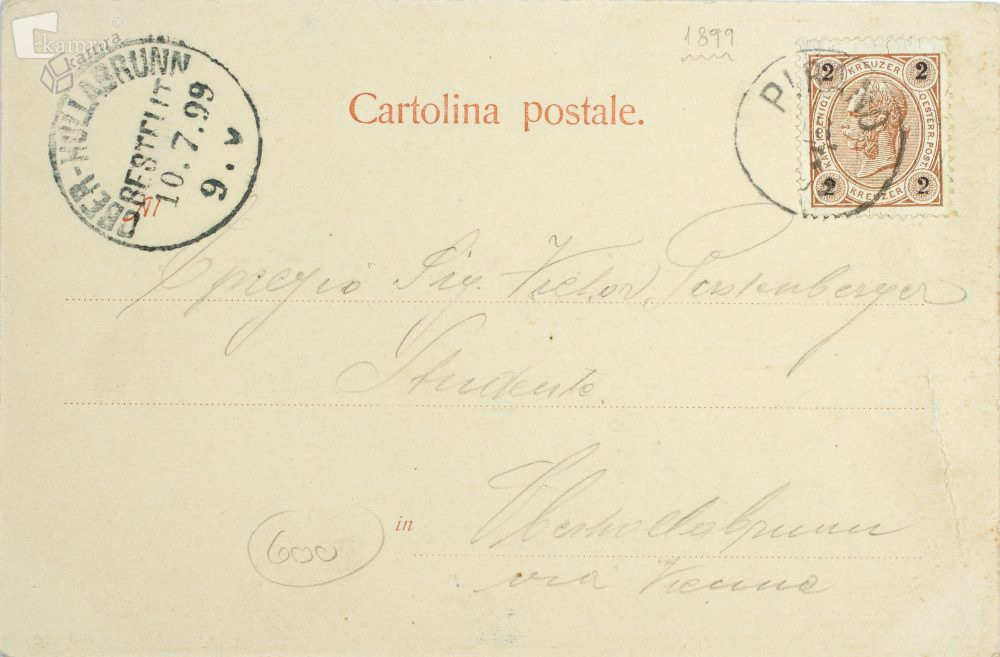 kamra
©
kamra
1899
OBER-HOLLABRUNN
BESTELLT
10.7.99
9.V
Cartolina postale.
PIR
2 KREUZER 2
KAIS. KOENIGL. OESTERR. POST.
2 KREUZER 2
Egregio Sig. Victor
Studente.
in Oberhollabrunn
via Vienna
600